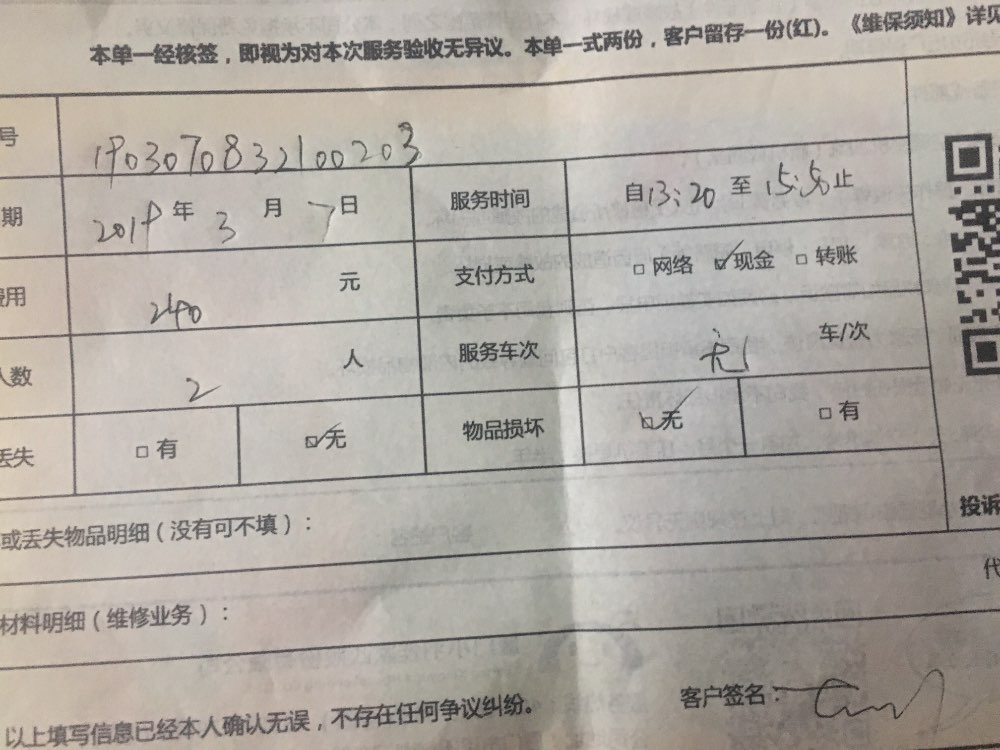 本单一经核签，即视为对本次服务验收无异议。本单一式两份，客户留存一份(红)。《维保须知》详见
号 1903070832100203
期 2019年 3 月 7日 服务时间 自13:20 至 15:50止
费用 240 元 支付方式 □ 网络 ☑现金 □ 转账
人数 2 人 服务车次 无 车/次
丢失 □ 有 ☑无 物品损坏 ☑无 □ 有
或丢失物品明细（没有可不填）：
投诉
代
材料明细（维修业务）：
客户签名：
以上填写信息已经本人确认无误，不存在任何争议纠纷。